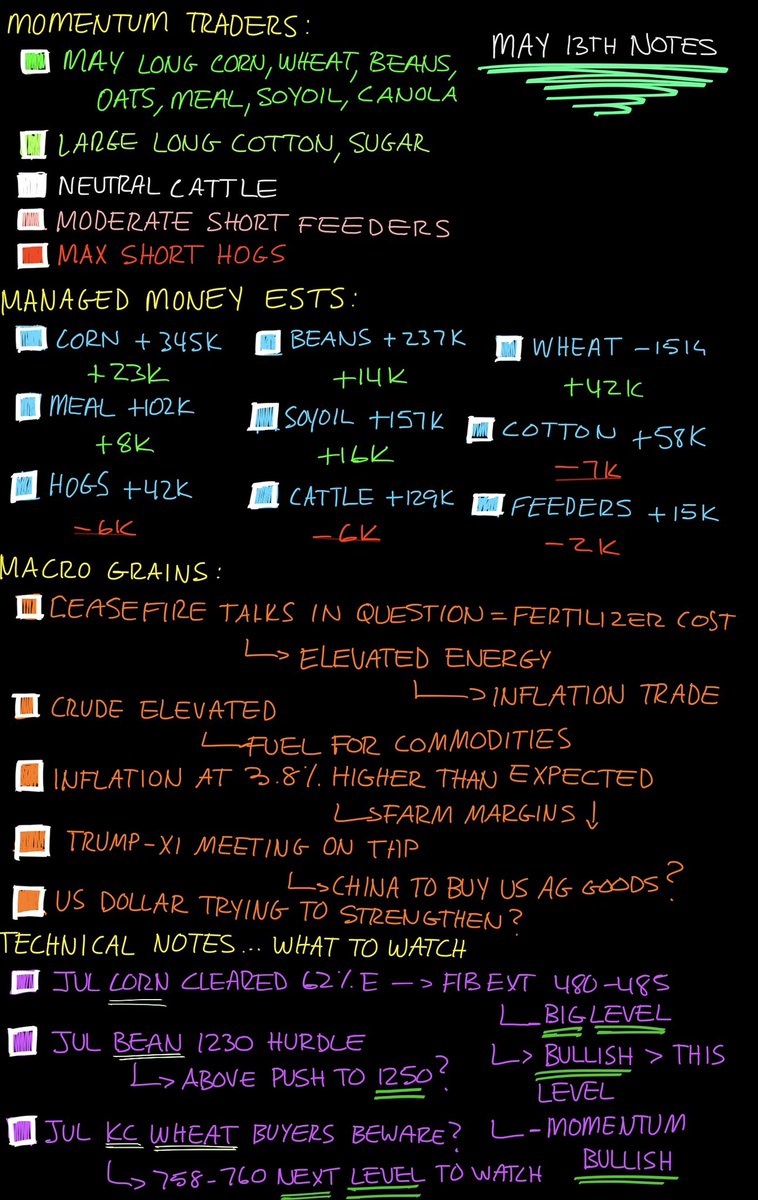 MAY 13TH NOTES
MOMENTUM TRADERS:
MAY LONG CORN, WHEAT, BEANS,
OATS, MEAL, SOYOIL, CANOLA
LARGE LONG COTTON, SUGAR
NEUTRAL CATTLE
MODERATE SHORT FEEDERS
MAX SHORT HOGS
MANAGED MONEY ESTS:
CORN +345K
+23K
BEANS +237K
+14K
WHEAT -1514
+42K
MEAL +102K
+8K
SOYOIL +157K
+16K
COTTON +58K
-7K
HOGS +42K
-6K
CATTLE +129K
-6K
FEEDERS +15K
-2K
MACRO GRAINS:
CEASEFIRE TALKS IN QUESTION = FERTILIZER COST
↳ ELEVATED ENERGY
↳ INFLATION TRADE
CRUDE ELEVATED
↳ FUEL FOR COMMODITIES
INFLATION AT 3.8% HIGHER THAN EXPECTED
↳ FARM MARGINS ↓
TRUMP-XI MEETING ON TAP
↳ CHINA TO BUY US AG GOODS?
US DOLLAR TRYING TO STRENGTHEN?
TECHNICAL NOTES... WHAT TO WATCH
JUL CORN CLEARED 62% E -> FIB EXT 480-485
↳ BIG LEVEL
↳ BULLISH > THIS
LEVEL
JUL BEAN 1230 HURDLE
↳ ABOVE PUSH TO 1250?
JUL KC WHEAT BUYERS BEWARE?
↳ 758-760 NEXT LEVEL TO WATCH
↳ - MOMENTUM
BULLISH